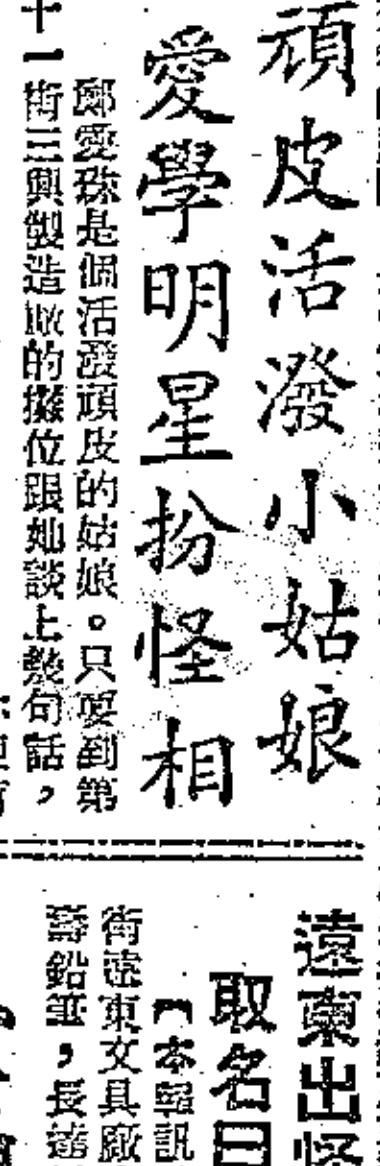 頑皮活潑小姑娘
愛學明星扮怪相
鄭愛珠是個活潑頑皮的姑娘。只要到第
十一街三興製造廠的攤位跟她談上幾句話,
遠東出怪
取名曰
【本報訊
街遠東文具廠
鉛筆,長達